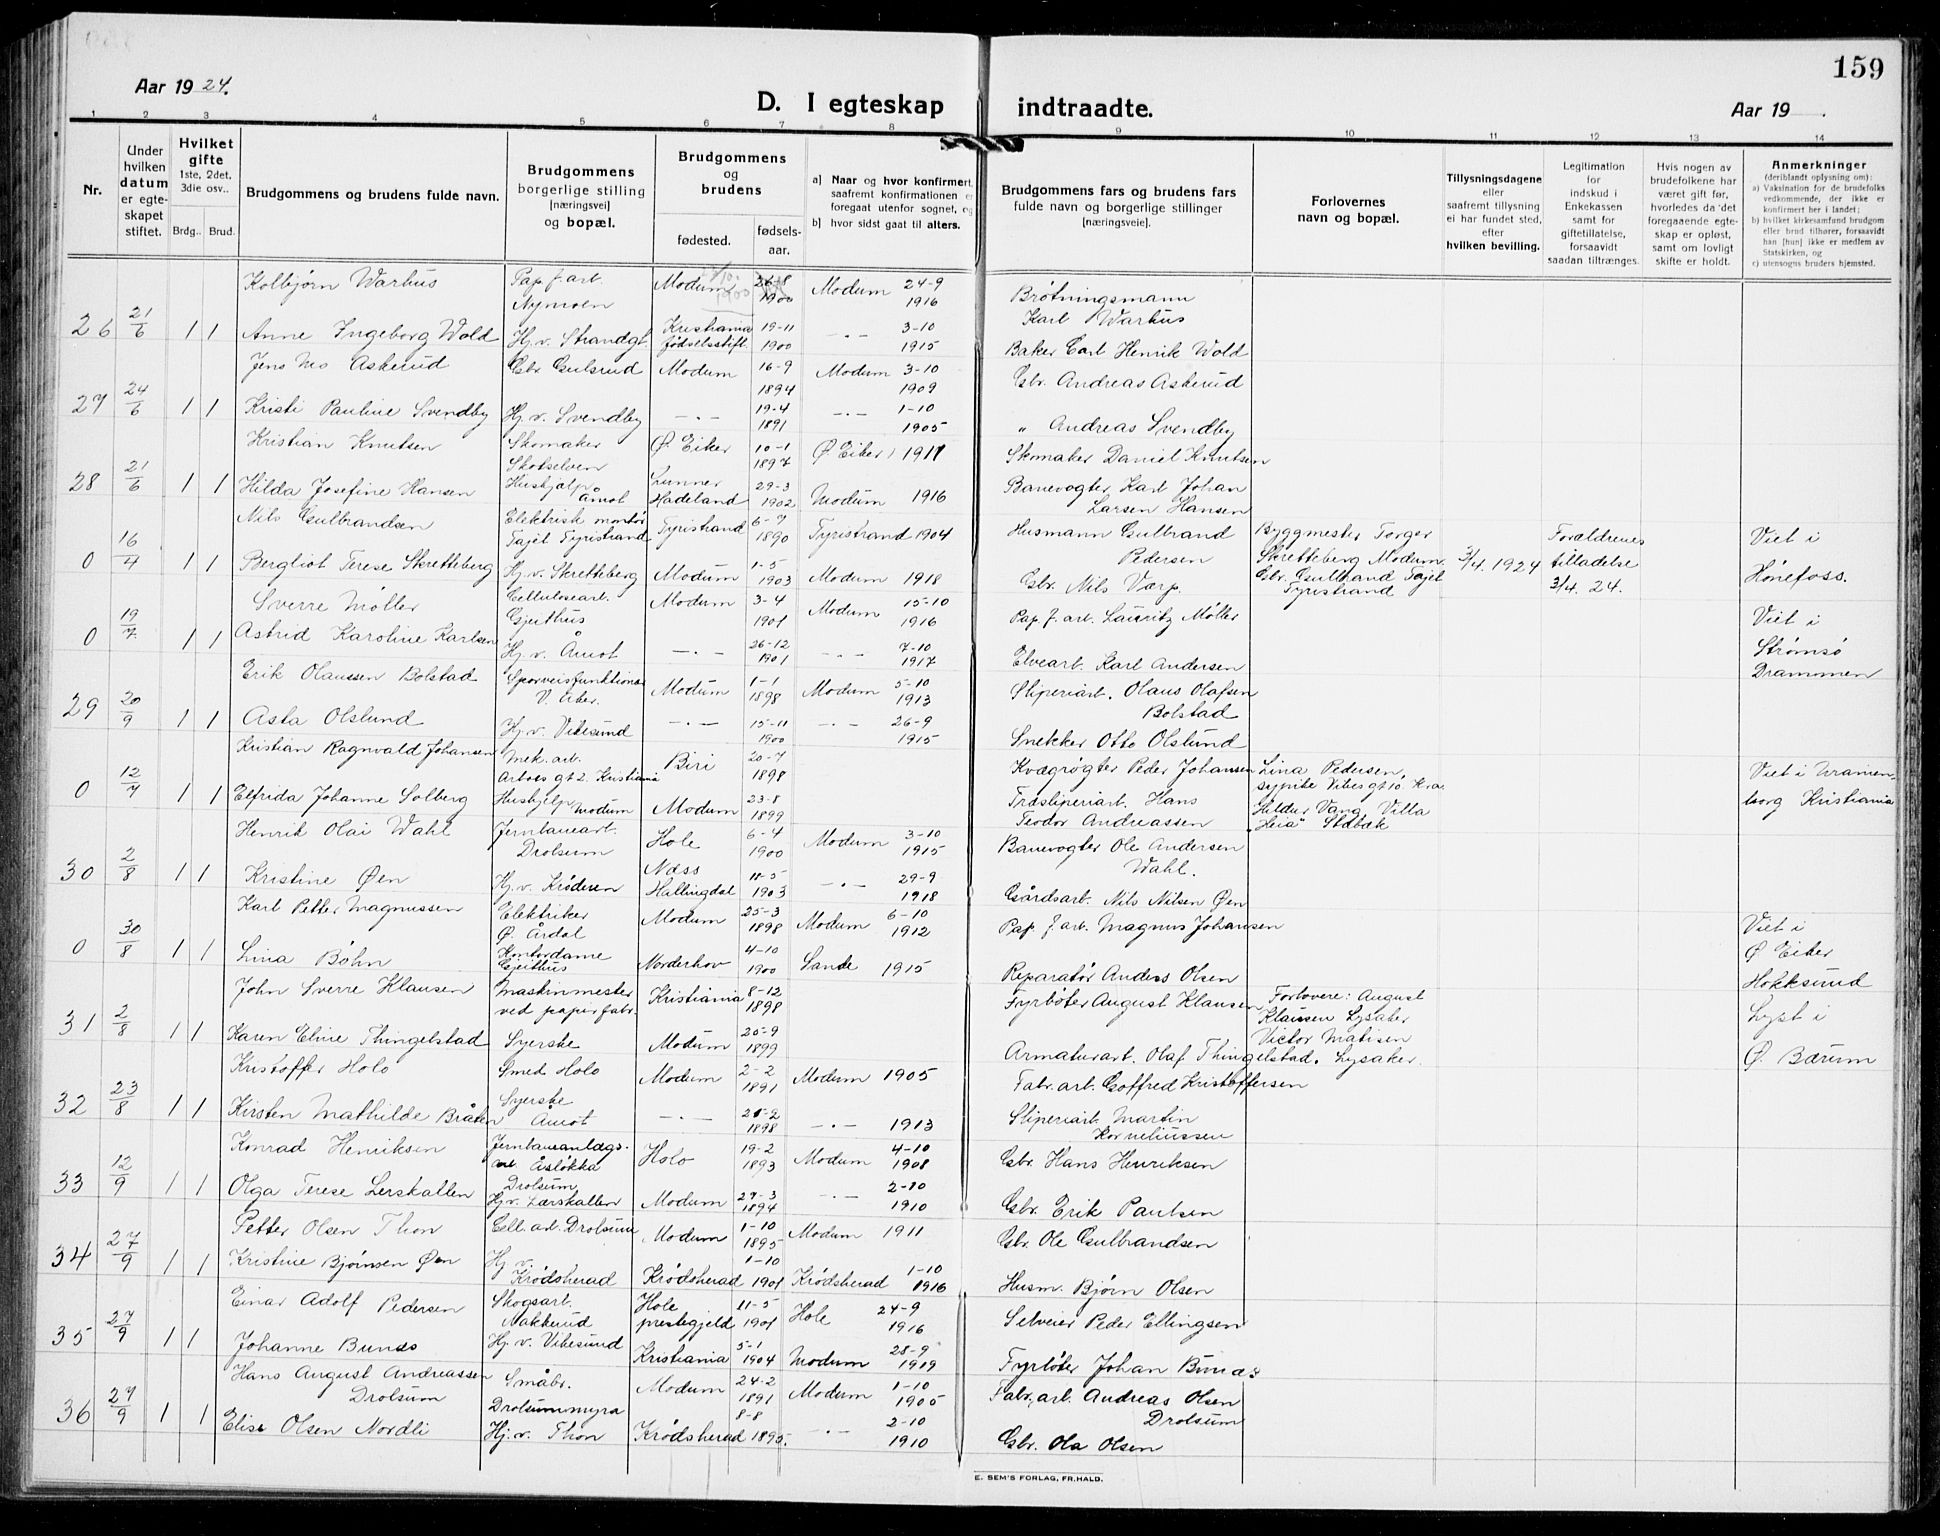 159
Aar 1924.
D. I egteskap indtraadte.
Aar 19 .
1 2 3 4 5 6 7 8 9 10 11 12 13 14
Nr.
Under hvilken datum er egteskapet stiftet.
Hvilket gifte 1ste, 2det, 3die osv..
Brdg.. Brud.
Brudgommens og brudens fulde navn.
Brudgommens borgerlige stilling [næringsvei] og bopæl.
Brudgommens og brudens
fødested.
fødselsaar.
a] Naar og hvor konfirmert, saafremt konfirmationen er foregaat utenfor sognet, og
b] hvor sidst gaat til alters.
Brudgommens fars og brudens fars fulde navn og borgerlige stillinger [næringsveie].
Forlovernes navn og bopæl.
Tillysningsdagene eller saafremt tillysning ei har fundet sted, efter hvilken bevilling.
Legitimation for indskud i Enkekassen samt for giftetillatelse, forsaavidt saadan tiltrænges.
Hvis nogen av brudefolkene har været gift før, hvorledes da det foregaaende egteskap er opløst, samt om lovlig skifte er holdt.
Anmerkninger (deriblandt oplysning om):
a) Vaksination for de brudefolks vedkommende, der ikke er konfirmert her i landet;
b) hvilket kirkesamfund brudgom eller brud tilhører, forsaavidt han [hun] ikke er medlem av Statskirken, og
c) utensogns bruders hjemsted.
Kolbjørn Warhus Pap. f. arb. Nymoen Modum 26-8 1900 Modum 24-9 1916 Brøtningsmann Karl Warhus
26 21/6 1 1 Anne Ingeborg Wold Hj. v. Strandgt. Kristiania fødselsstift. 19-11 1900 -"- 3-10 1915 Baker Carl Henrik Wold
Jens Askerud Gbr. Gulsrud Modum 16-9 1894 Modum 3-10 1909 Gbr. Andreas Askerud
27 24/6 1 1 Kristi Pauline Svendby Hj. v. Svendby -"- 19-4 1891 -"- 1-10 1905 " Andreas Svendby
Kristian Knutsen Skomaker Skotselven Ø. Eiker 10-1 1897 Ø. Eiker 1911 Skomaker Daniel Knutsen
28 21/6 1 1 Hilda Josefine Hansen Hushjelp Åmot Lunner Hadeland 29-3 1902 Modum 1916 Banevogter Karl Johan Larsen Hansen
Nils Gulbrandsen Elektrisk montør Tajet Tyristrand Tyristrand 6-7 1890 Tyristrand 1904 Husmann Gulbrand Pedersen Byggmester Torger Skretteberg Modum. Gbr. Gulbrand Tajet Tyristrand 3/4. 1924 Forældrenes tilladelse 3/4. 24. Viet i Hønefoss.
0 16/4 1 1 Bergliot Terese Skretteberg Hj. v. Skretteberg Modum 1-5 1903 Modum 1918 Gbr. Nils Værp.
Sverre Møller Celluloseart. Gjeithus Modum 3-4 1901 Modum 15-10 1916 Pap. f. arb. Lauritz Møller Viet i Strømsø Drammen
0 19/7 1 1 Astrid Karoline Karlsen Hj. v. Åmot -"- 26-12 1901 -"- 7-10 1917 Elveart. Karl Andersen
Erik Olaussen Bolstad Sporveisfunktionær V. Aker. Modum 1-1 1898 Modum 5-10 1913 Sliperiart. Olaus Olafsen Bolstad
29 20/9 1 1 Asta Olslund Hj. v. Vikesund -"- 15-11 1900 -"- 26-9 1915 Snekker Otto Olslund
Kristian Ragnvald Johansen Mek. arb. Arboes gt 2. Kristiania Biri 20-7 1898 Kvægrøgter Peder Johansen Lina Pedersen, sypike Vibes gt 10. Kra. Hildur Vang Villa "Heia" Stabæk Viet i Uranienborg Kristiania
0 12/7 1 1 Elfrida Johanne Solberg Hushjelp Modum Modum 23-8 1899 Træsliperiart. Hans Teodor Andreassen
Henrik Olai Wahl Jernbaneart. Drolsum Hole 6-4 1900 Modum 3-10 1915 Banevogter Ole Andersen Wahl.
30 2/8 1 1 Kristine Øen Hj. v. Krøderen Næss Hallingdal 11-5 1903 -"- 29-9 1918 Gårdsart. Nils Nilsen Øen
Karl Petter Magnussen Elektriker Ø. Årdal Modum 25-3 1898 Modum 6-10 1912 Pap. f. art. Magnus Johansen Viet i Ø Eiker Hokksund
0 30/8 1 1 Lina Bøhn Kontordame Gjeithus Norderhov 4-10 1900 Sande 1915 Reparatør Anders Olsen
John Sverre Klausen Maskinmester ved papirfabr. Kristiania 8-12 1898 Fyrbøter August Klausen Forlovere: August Klausen Lysaker Victor Matisen Lysaker. Lyst i Ø. Bærum
31 2/8 1 1 Karen Eline Thingelstad Syerske Modum 20-9 1899 Armaturart. Olaf Thingelstad.
Kristoffer Holo Smed Holo Modum 2-2 1891 Modum 1905 Fabr. art. Goffred Kristoffersen
32 23/8 1 1 Kirsten Mathilde Bråten Syerske Åmot -"- 21-2 1898 -"- 1913 Sliperiart. Martin Korneliussen
Konrad Henriksen Jernbaneanlægs- art Åsløkka Drolsum Holo 19-2 1893 Modum 4-10 1908 Gbr. Hans Henriksen
33 12/9 1 1 Olga Terese Lerskallen Hj. v. Lærskallen Modum 27-3 1894 -"- 2-10 1910 Gbr. Erik Paulsen
Petter Olsen Thon Cell. art. Drolsum Modum 1-10 1895 Modum 1911 Gbr. Ole Gulbrandsen
34 27/9 1 1 Kristine Bjørnsen Øen Hj. v. Krødsherad Krødsherad 1-10 1901 Krødsherad 1-10 1916 Husm. Bjørn Olsen
Einar Adolf Pedersen Skogsart. Nakkerud Hole prestegjeld 11-5 1901 Hole 24-9 1916 Selveier Peder Ellingsen
35 27/9 1 1 Johanne Bunæs Hj. v. Vikesund Kristiania 5-1 1904 Modum 28-9 1919 Fyrbøter Johan Bunæs
Hans August Andreassen Drolsum Småbr. Drolsummyra Modum 24-2 1891 Modum 1-10 1905 Fabr. art. Andreas Olsen Drolsum
36 27/9 1 1 Elise Olsen Nordli Hj. v. Thon Krødsherad 8-8 1895. -"- 2-10 1910 Gbr. Ola Olsen
E. SEM'S FORLAG, FR.HALD.